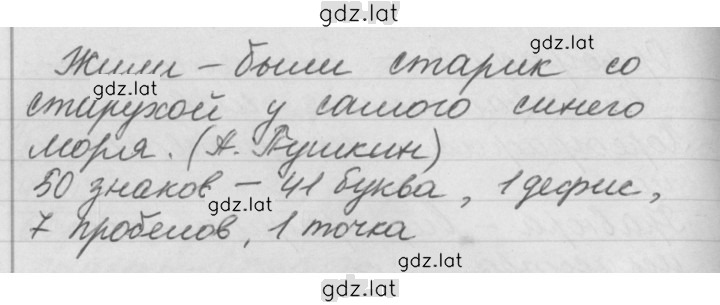 gdz.lat
gdz.lat
Жили – были старик со
gdz.lat
старухой у самого синего
моря. (А. Пушкин)
gdz.lat
50 знаков – 41 буква, 1 дефис,
gdz.lat
7 пробелов, 1 точка
gdz.lat
gdz.lat